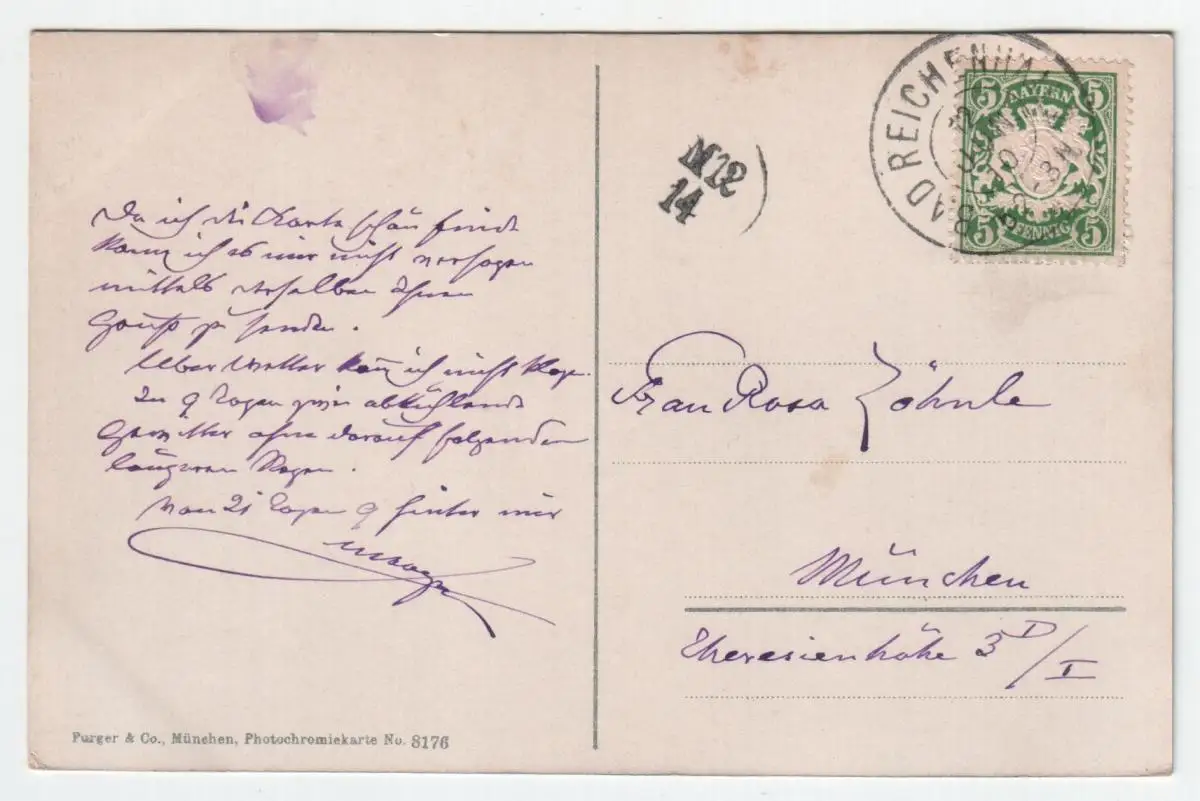 Da ich die Karte schön finde
kann ich es mir nicht versagen
mittels derselben Ihnen
Gruß zu senden.
Ueber Wetter kann ich nicht klagen.
In 9 Tagen abkühlende
Gewitter ohne darauf folgenden
längeren Regen.
Von 21 Tagen 9 hinter mir
Purger & Co., München, Photochromiekarte No. 8176
M12
14
BAD REICHENHALL
5 BAYERN 5
5 PFENNIG 5
Frau Rosa Zöhnle
München
Theresienhöhe 3 D/I